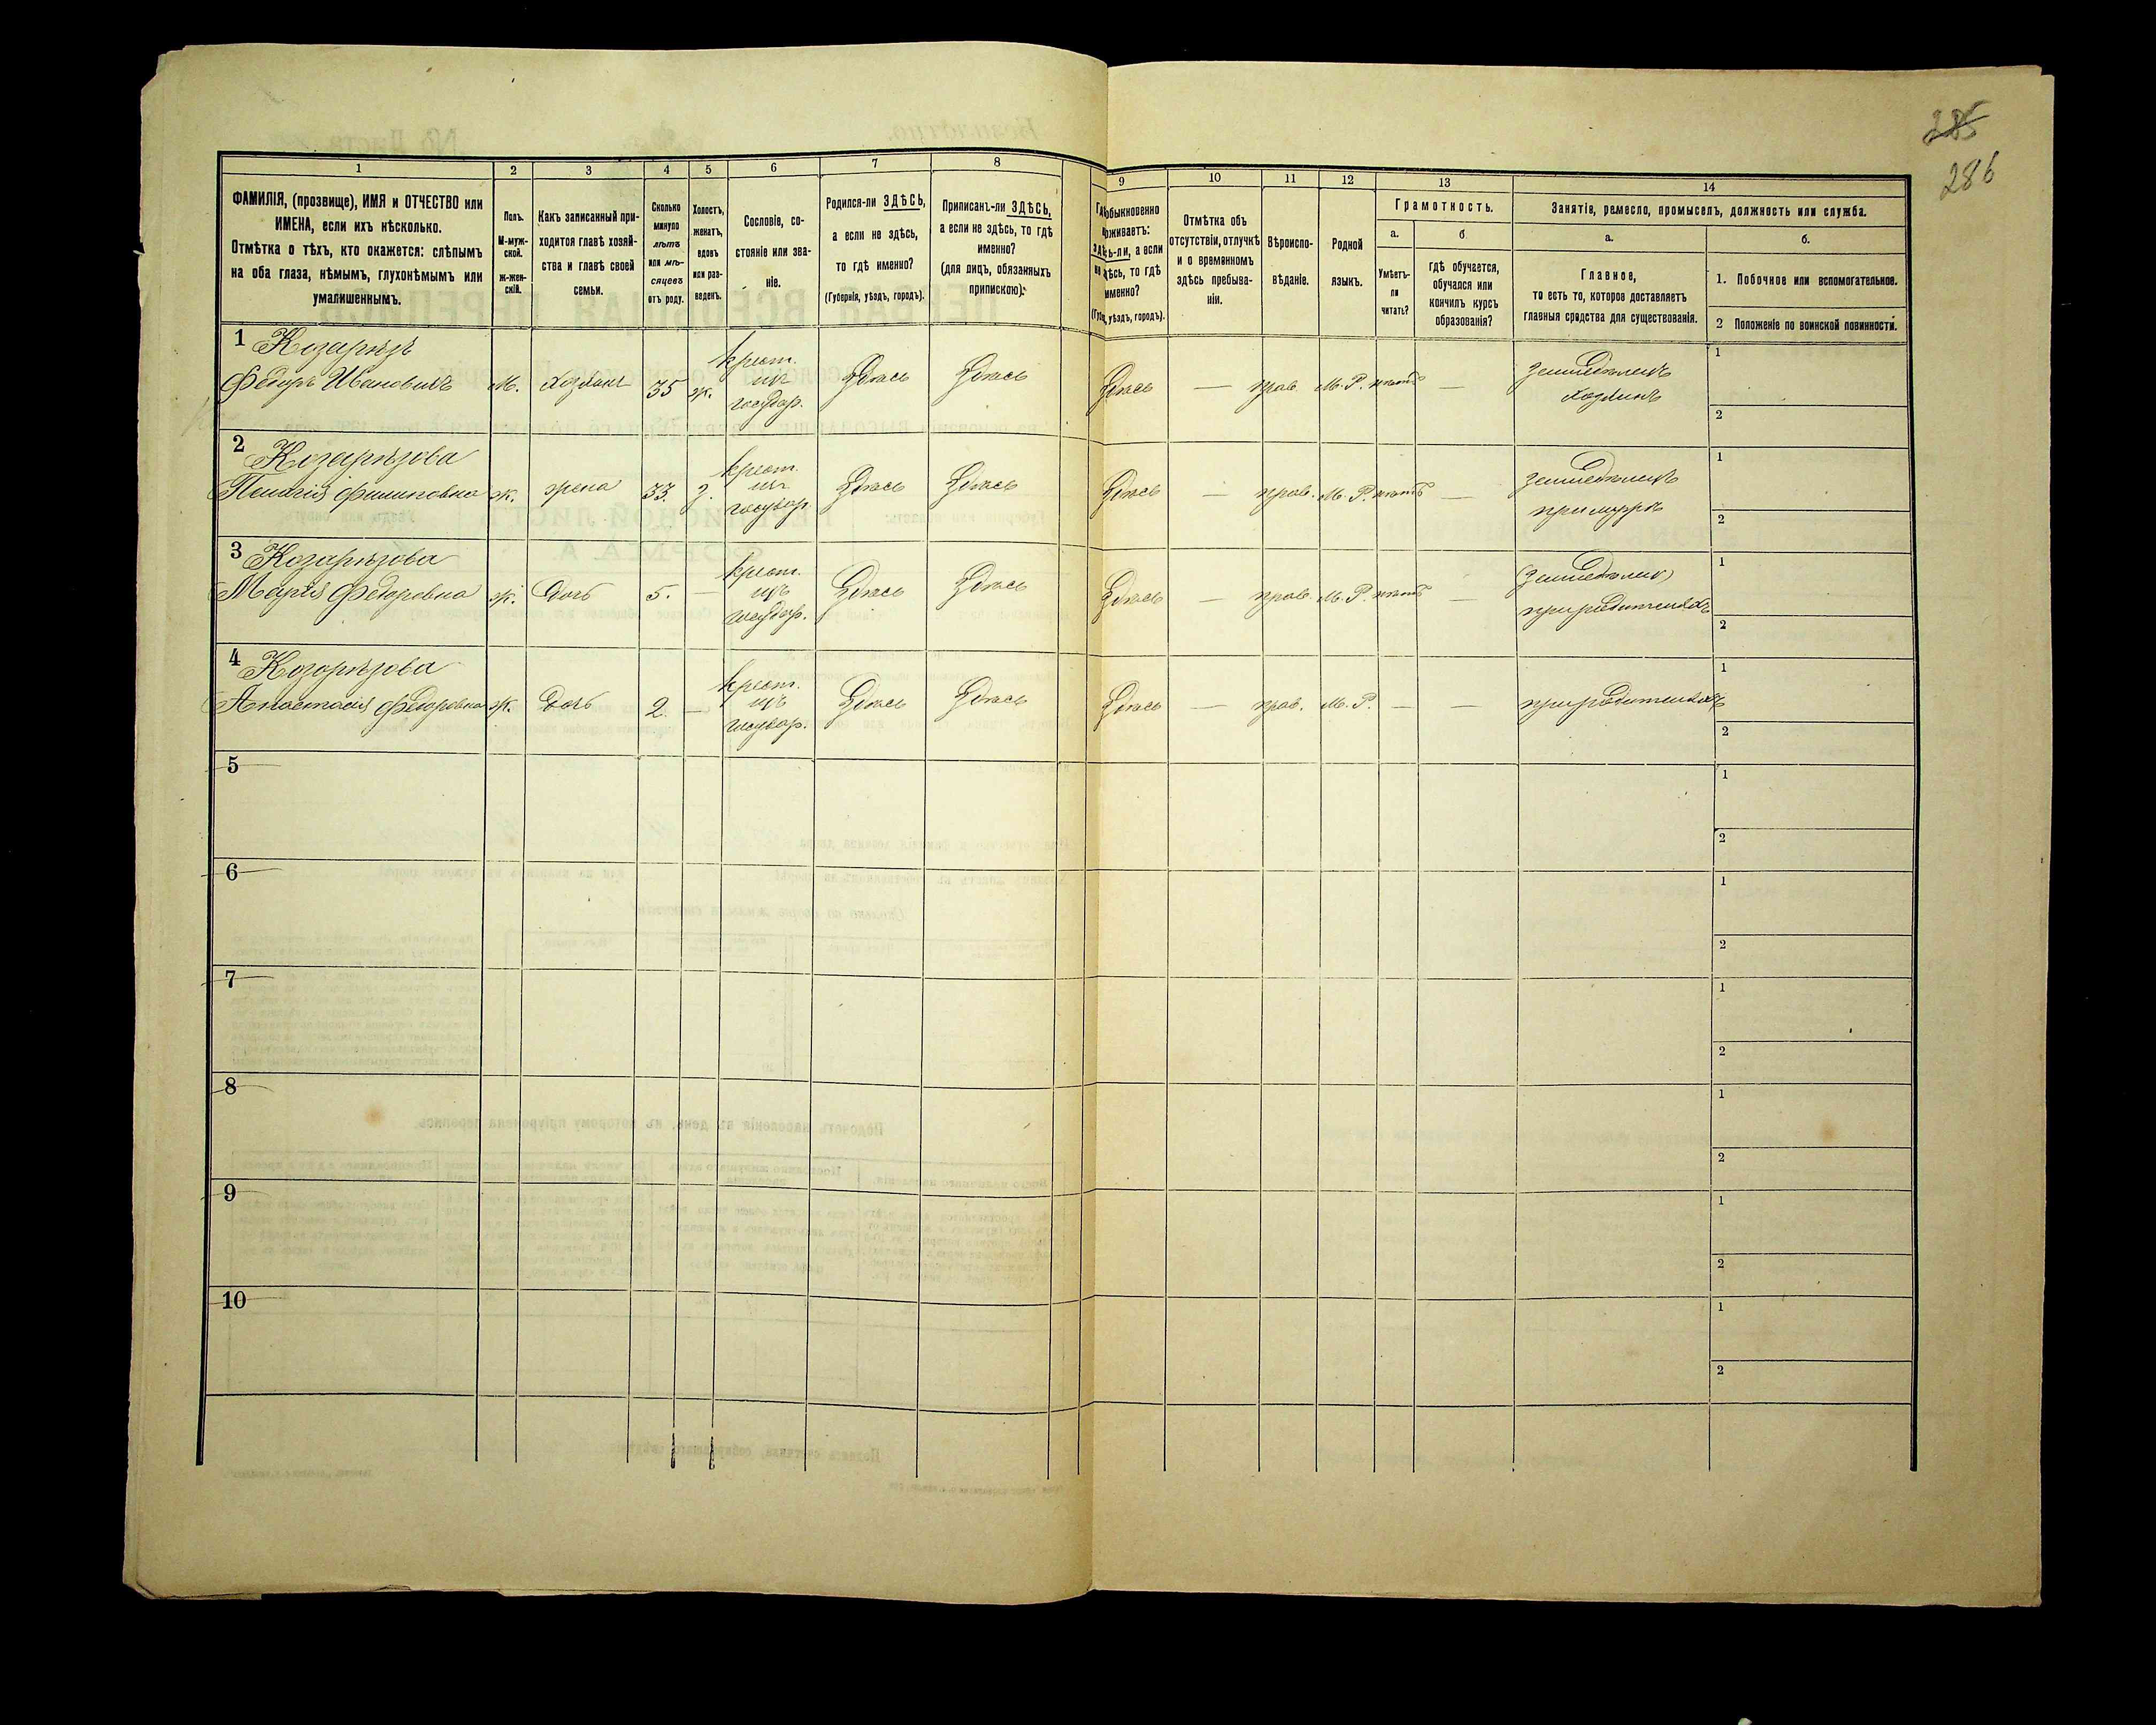 285
286
1
2
3
4
5
6
7
8
9
10
11
12
13
14
ФАМИЛІЯ, (прозвище), ИМЯ и ОТЧЕСТВО или
ИМЕНА, если ихъ нѣсколько.
Отмѣтка о тѣхъ, кто окажется: слѣпымъ
на оба глаза, нѣмымъ, глухонѣмымъ или
умалишеннымъ.
Полъ.
М-муж-
ской.
Ж-жен-
скій.
Какъ записанный при-
ходится главѣ хозяй-
ства и главѣ своей
семьи.
Сколько
минуло
лѣтъ
или мѣ-
сяцевъ
отъ роду.
Холостъ,
женатъ,
вдовъ
или раз-
веденъ.
Сословіе, со-
стояніе или зва-
ніе.
Родился-ли ЗДѢСЬ,
а если не здѣсь,
то гдѣ именно?
(Губернія, уѣздъ, городъ).
Приписанъ-ли ЗДѢСЬ,
а если не здѣсь, то гдѣ
именно?
(для лицъ, обязанныхъ
припискою).
обыкновенно
проживаетъ:
здѣсь-ли, а если
не здѣсь, то гдѣ
именно?
уѣздъ, городъ).
Отмѣтка объ
отсутствіи, отлучкѣ
и о временномъ
здѣсь пребыва-
ніи.
Вѣроиспо-
вѣданіе.
Родной
языкъ.
Грамотность.
а.
Умѣетъ-
ли
читать?
б.
гдѣ обучается,
обучался или
кончилъ курсъ
образованія?
Занятіе, ремесло, промыселъ, должность или служба.
а.
Главное,
то есть то, которое доставляетъ
главныя средства для существованія.
б.
1. Побочное или вспомогательное.
2 Положеніе по воинской повинности.
1 Козарѣзъ
Ѳедоръ Ивановичъ М. Хозяинъ 35 ж. крест. изъ государ. Здѣсь Здѣсь Здѣсь — прав. М. Р. нѣтъ — Земледѣлецъ хозяинъ
1
2
2 Козарѣзова
Пелагія Филиповна ж. жена 33. з. крест. изъ государ. Здѣсь Здѣсь Здѣсь — прав. М. Р. нѣтъ — Земледѣлецъ при мужѣ
1
2
3 Козарѣзова
Марія Ѳедоровна ж. Дочь 5. — крест. изъ государ. Здѣсь Здѣсь Здѣсь — прав. М. Р. нѣтъ — (Земледѣлец) при родителяхъ
1
2
4 Козорѣзова
Анастасія Ѳедоровна ж. Дочь 2. — крест. изъ государ. Здѣсь Здѣсь Здѣсь — прав. М. Р. — — при родителяхъ
1
2
5
1
2
6
1
2
7
1
2
8
1
2
9
1
2
10
1
2